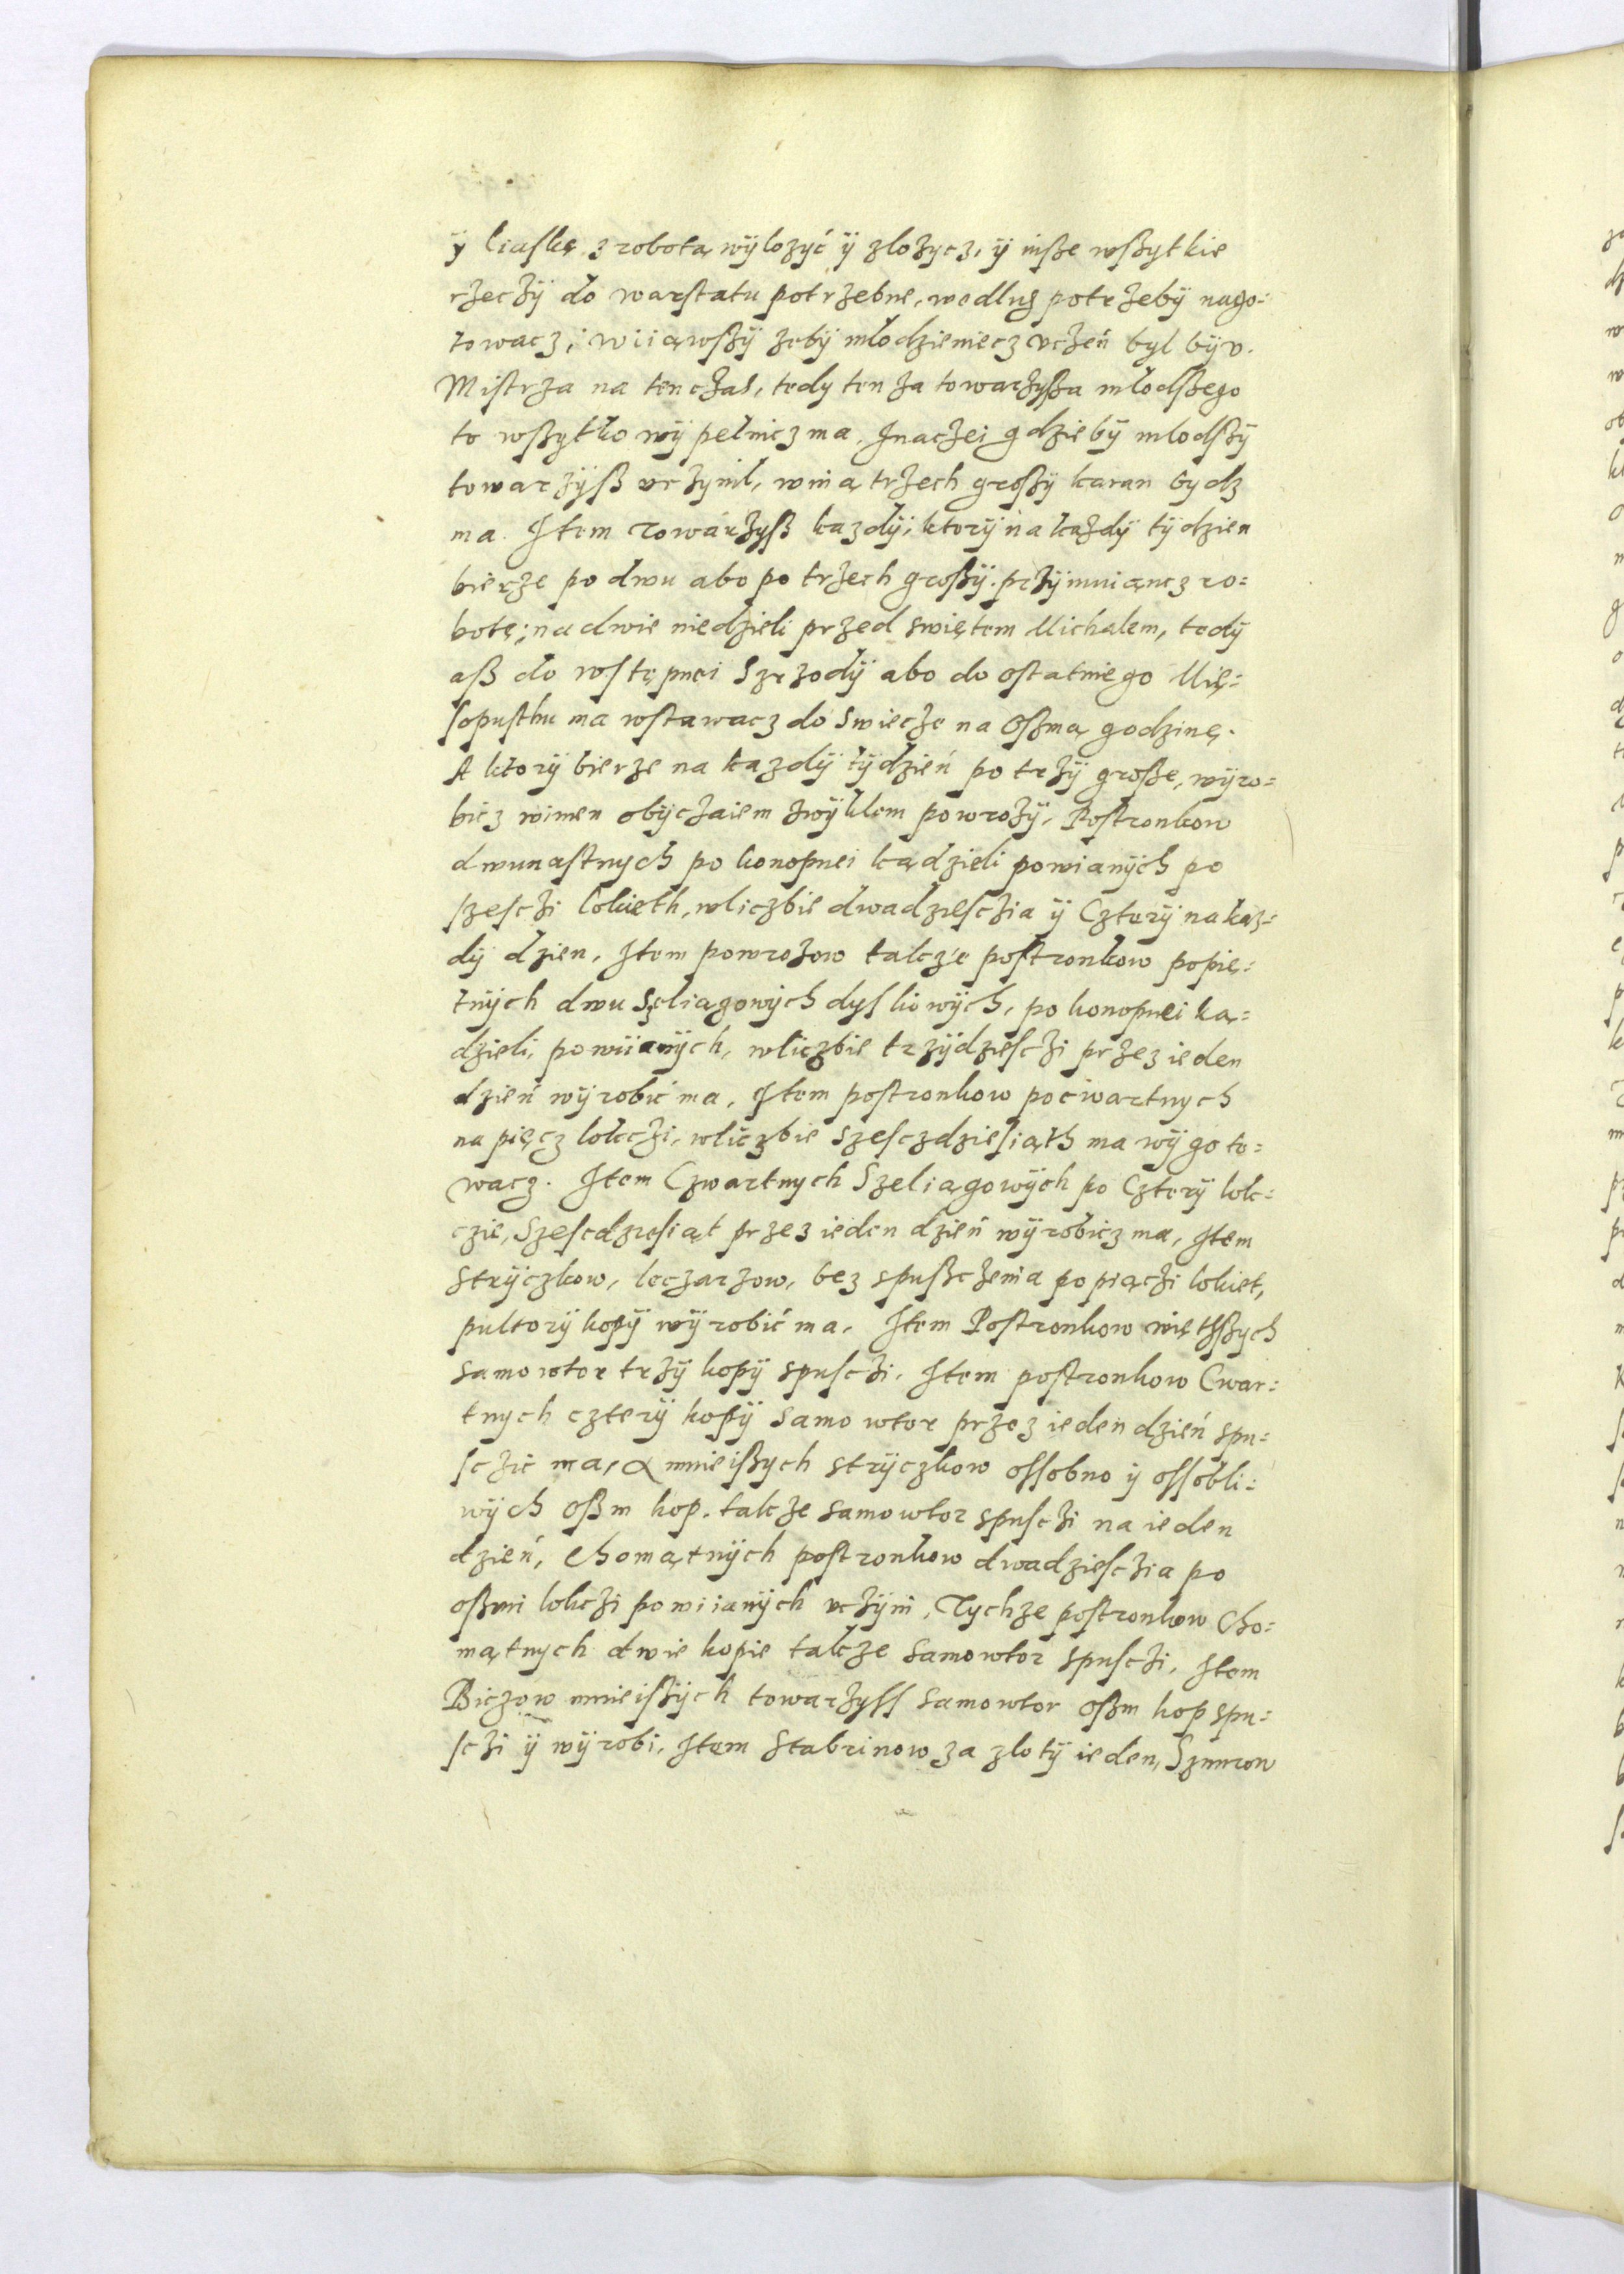 ÿ liaskę z robotą wÿlozyć ÿ zlożycz, ÿ inße wßytkie
rzeczÿ do warstatu potrzebne, wedlug potrzebÿ nago:
towacz, wiiąwßÿ zebÿ mlodzieniecz uczeń byl bÿ v.
Mistrza na tenczas, tedy ten za towarzyßa mlodßego
to wßytko wÿpelnicz ma, Inaczei gdzie bÿ mlodßÿ
towarzÿß uczynil, winą trzech großÿ karan bydz
ma. Item Towarzyß kazdÿ, ktorÿ na każdÿ tÿdzien
bierze po dwu abo po trzech großÿ. przÿmuiącz ro:
botę; na dwie niedzieli przed swiętem Michalem, tedÿ
aß do wstępnei Szrzodÿ abo do ostatniego Mię:
sopusthu ma wstawacz do swiecze na Oßmą godzinę.
A ktorÿ bierze na kazdÿ tÿdzień po trzÿ große, wÿro:
bicz winien obÿczaiem zwÿklem powrozÿ, Postronkow
dwunastnych po konopnei kądzieli powianÿch po
szesczi lokieth, wliczbie dwadziesczia ÿ Czterÿ na kaz:
dÿ dzien, Item powrozow takcze postronkow popię:
tnÿch dwu Seliągowÿch dyslowÿch, po konopnei ką:
dzieli, powiianÿch, wliczbie trzÿdziesczi przez ieden
dzień wÿrobić ma, Item postronkow poćwartnych
na pięcz lokczi, wliczbie szesczdziesiąth ma wÿgoto:
wacz. Item Czwartnych Szeliągowÿch po Czterÿ lok:
czie, Szesćdziesiąt przez ieden dzień wÿrobicz ma, Item
Strÿczkow, leczarzow, bez spußczenia po piączi lokiet,
pultorÿ kopÿ wÿrobić ma. Item Postronkow więthßych
samowtor trzÿ kopÿ spusczi. Item postronkow Cwar:
tnych czterÿ kopÿ samowtor przez ieden dzień spu:
scźić ma, a mnieißych strÿczkow ossobno ÿ ossobli:
wÿch oßm kop. takcze samowtor spusczi na ieden
dzień, Chomątnÿch postronkow dwadziesczia po
oßmi lokczi powiianÿch uczÿni, Tychze postronkow Cho:
mątnych dwie kopie takcze samowtor spusczi, Item
Biczow mnieißÿch towarzyss samowtor oßm kop spu:
sczi ÿ wÿrobi, Item Stabrinow za zlotÿ ieden, Sznurow